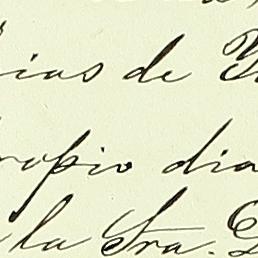 ias de
ropio dia
la Sra.